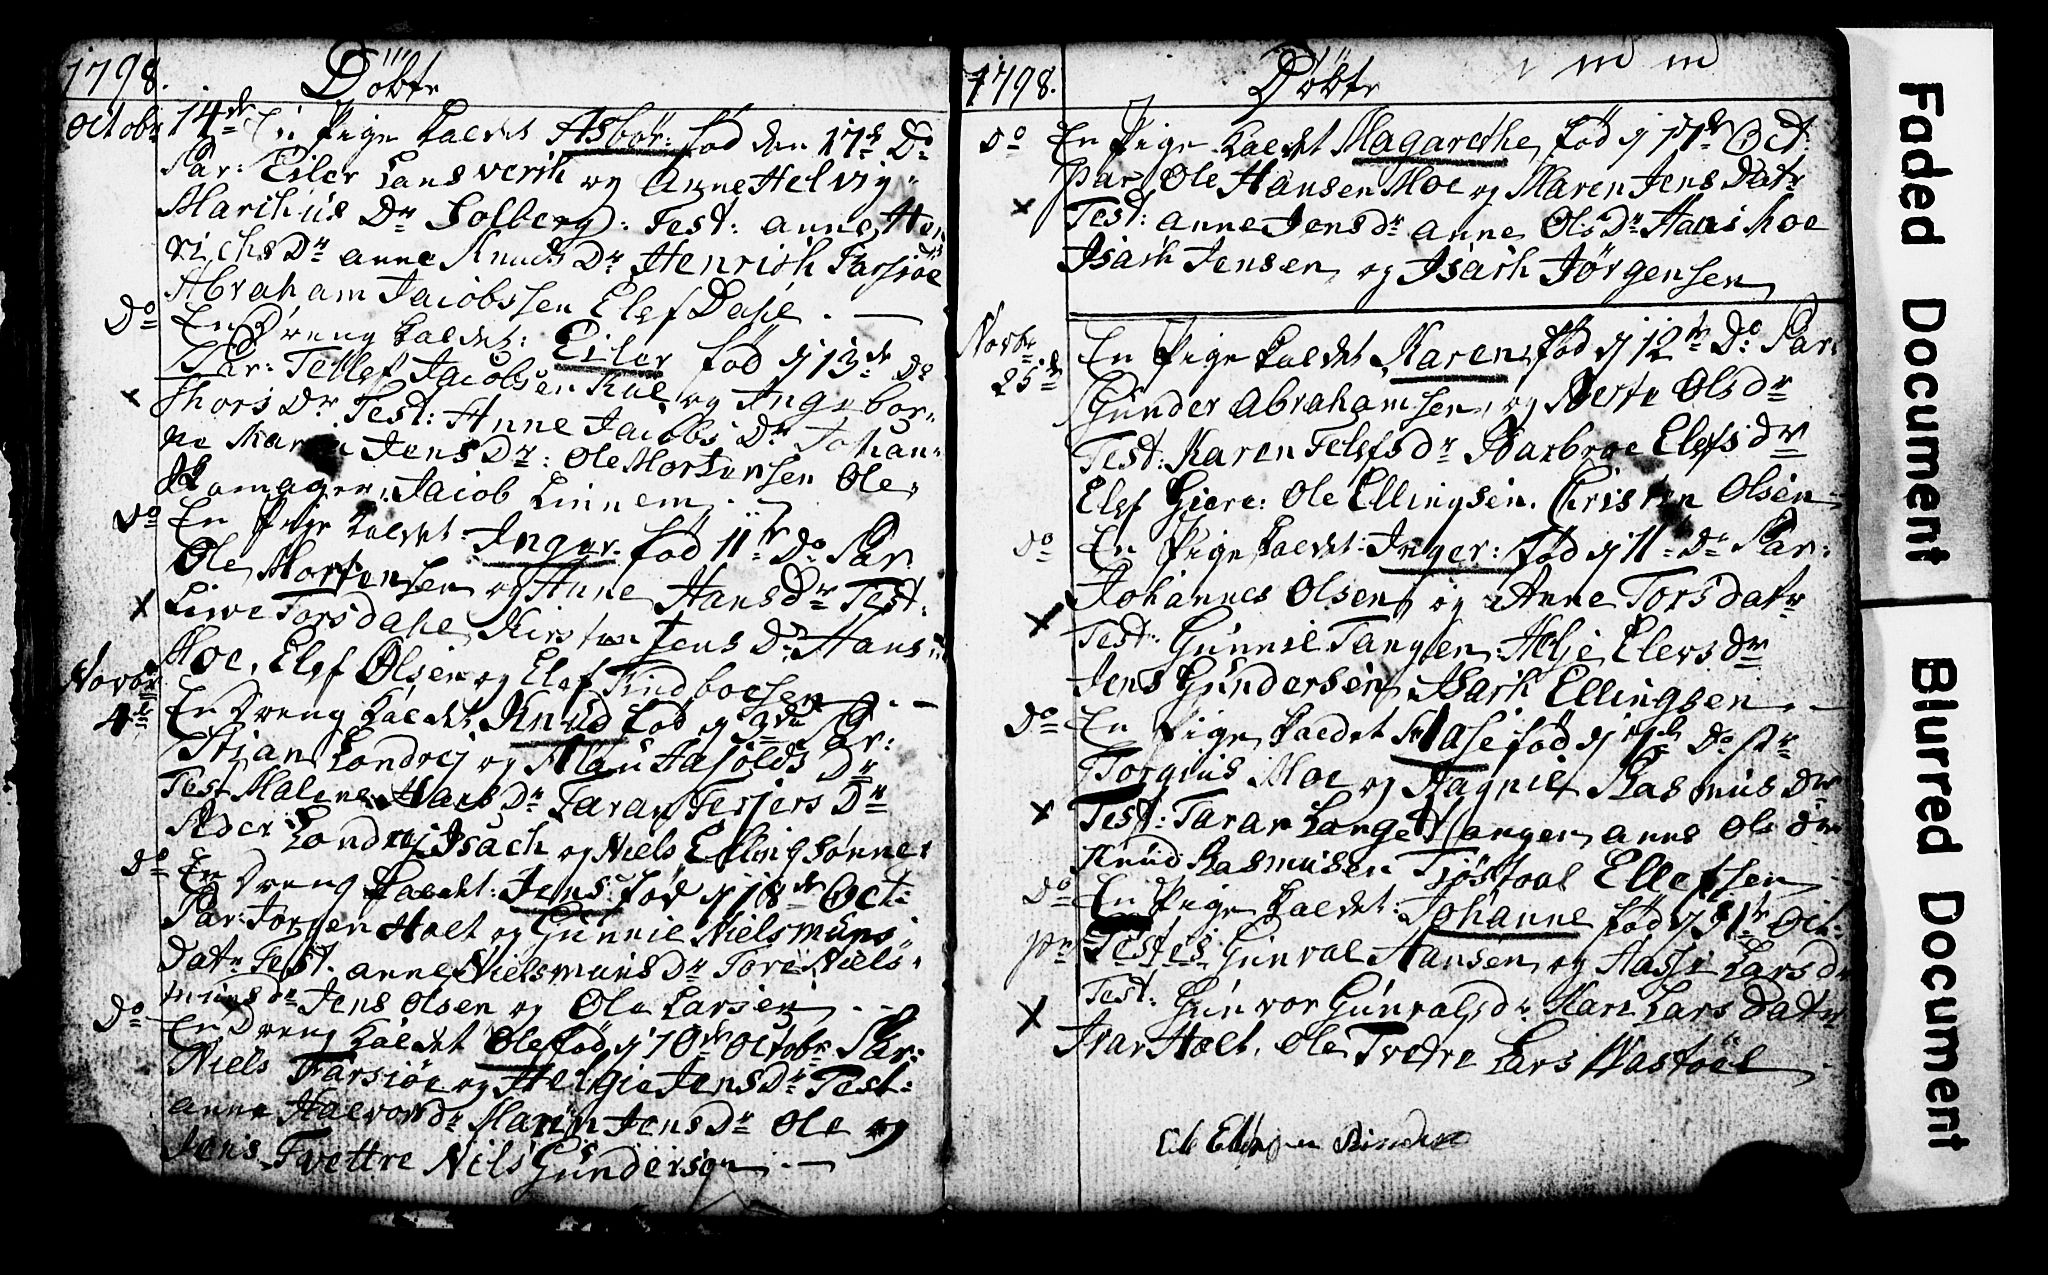 1798. Döbte
Octobr 14de En Pige kaldet Asbör: föd den 17de Do
Par: Eiler Landsverk og Anne Helvig
Marckus Dr Solberg: Test: anne Hen
richs Dr anne Knuds Dr Henrich Farsioe
Abraham Jacobssen Elef Dahle.
Do En Dreng kaldet: Eiler föd d 13de Do
Par: Tellef Jacobsen og Ingebor
Thors Dr Test: Anne Jacobs Dr Johan
ne Maren Jens Dr: Ole Mortensen Ole
Jacob Linnem.
Do En Pige kaldet Inger föd 11te Do Par
Ole Mortensen og Anne Hans Dr Test:
Live Torsdahl Kirsten Jens Dr Hans
Moe, Elef Olsen og Elef
Novbr 4de En Dreng kaldet Knud föd d 9de Par:
Stian Londrej og Dr
Test Malene Hans Dr Taran Terjers Dr
Peder Londrej Isach og Niels Ellingsönner
Do En Dreng kaldet: Jens: föd d 18de Oct:
Par: Jörgen Holt og Gunnil Nielsmuns
Datr Test. anne Nielsmuns Dr Tore Niels
muns dr Jens Olsen og Ole Larsen
Do En Dreng kaldet Ole föd d 10de Octobr Par:
Niels Farsiöe og Helgie Jens Dr Test:
anne Halvors dr Maren Jens Dr Ole og
Jens Tvettre Nils Gunderson.
1798. Döbte
Do En Pige kaldet Magarethe föd d 17de Oct:
Par Ole Hansen Moe og Maren Jens Datr
Test: anne Jens dr anne Ols Dr Hans Moe
Isach Jensen og Isach Jörgensen
Novbr 25de En Pige kaldet Karen föd d 12te Do Par:
Gunder Abrahamsen og Berte Ols dr
Test: Karen Telefs dr Barbroe Elefs dr
Elef Giere: Ole Ellingsen. Christen Olsen
Do En Pige kaldet: Inger: föd d 11te Do Par:
Johannes Olsen og Anne Tors datr
Test: Gunnil Tangen Helje Elers dr
Jens Gundersen Isach Ellingsen.
Do En Pige kaldet Aase föd d Do Pr
Torgius Moe og Aagnil Rasmus dr
Test: Taran Langetangen anne Ols dr
Knud Rasmusen Tjöstoel Ellefsen
Do En Pige kaldet: Johanne föd d 31te Oct:
Pr Gunval Hansen og Aasse Lars dr
Test: Gunvor Gunvals dr Mari Lars Datr
Ivar Holt, Ole Tvedre Lars Nastöel.
Faded Document
Blurred Document